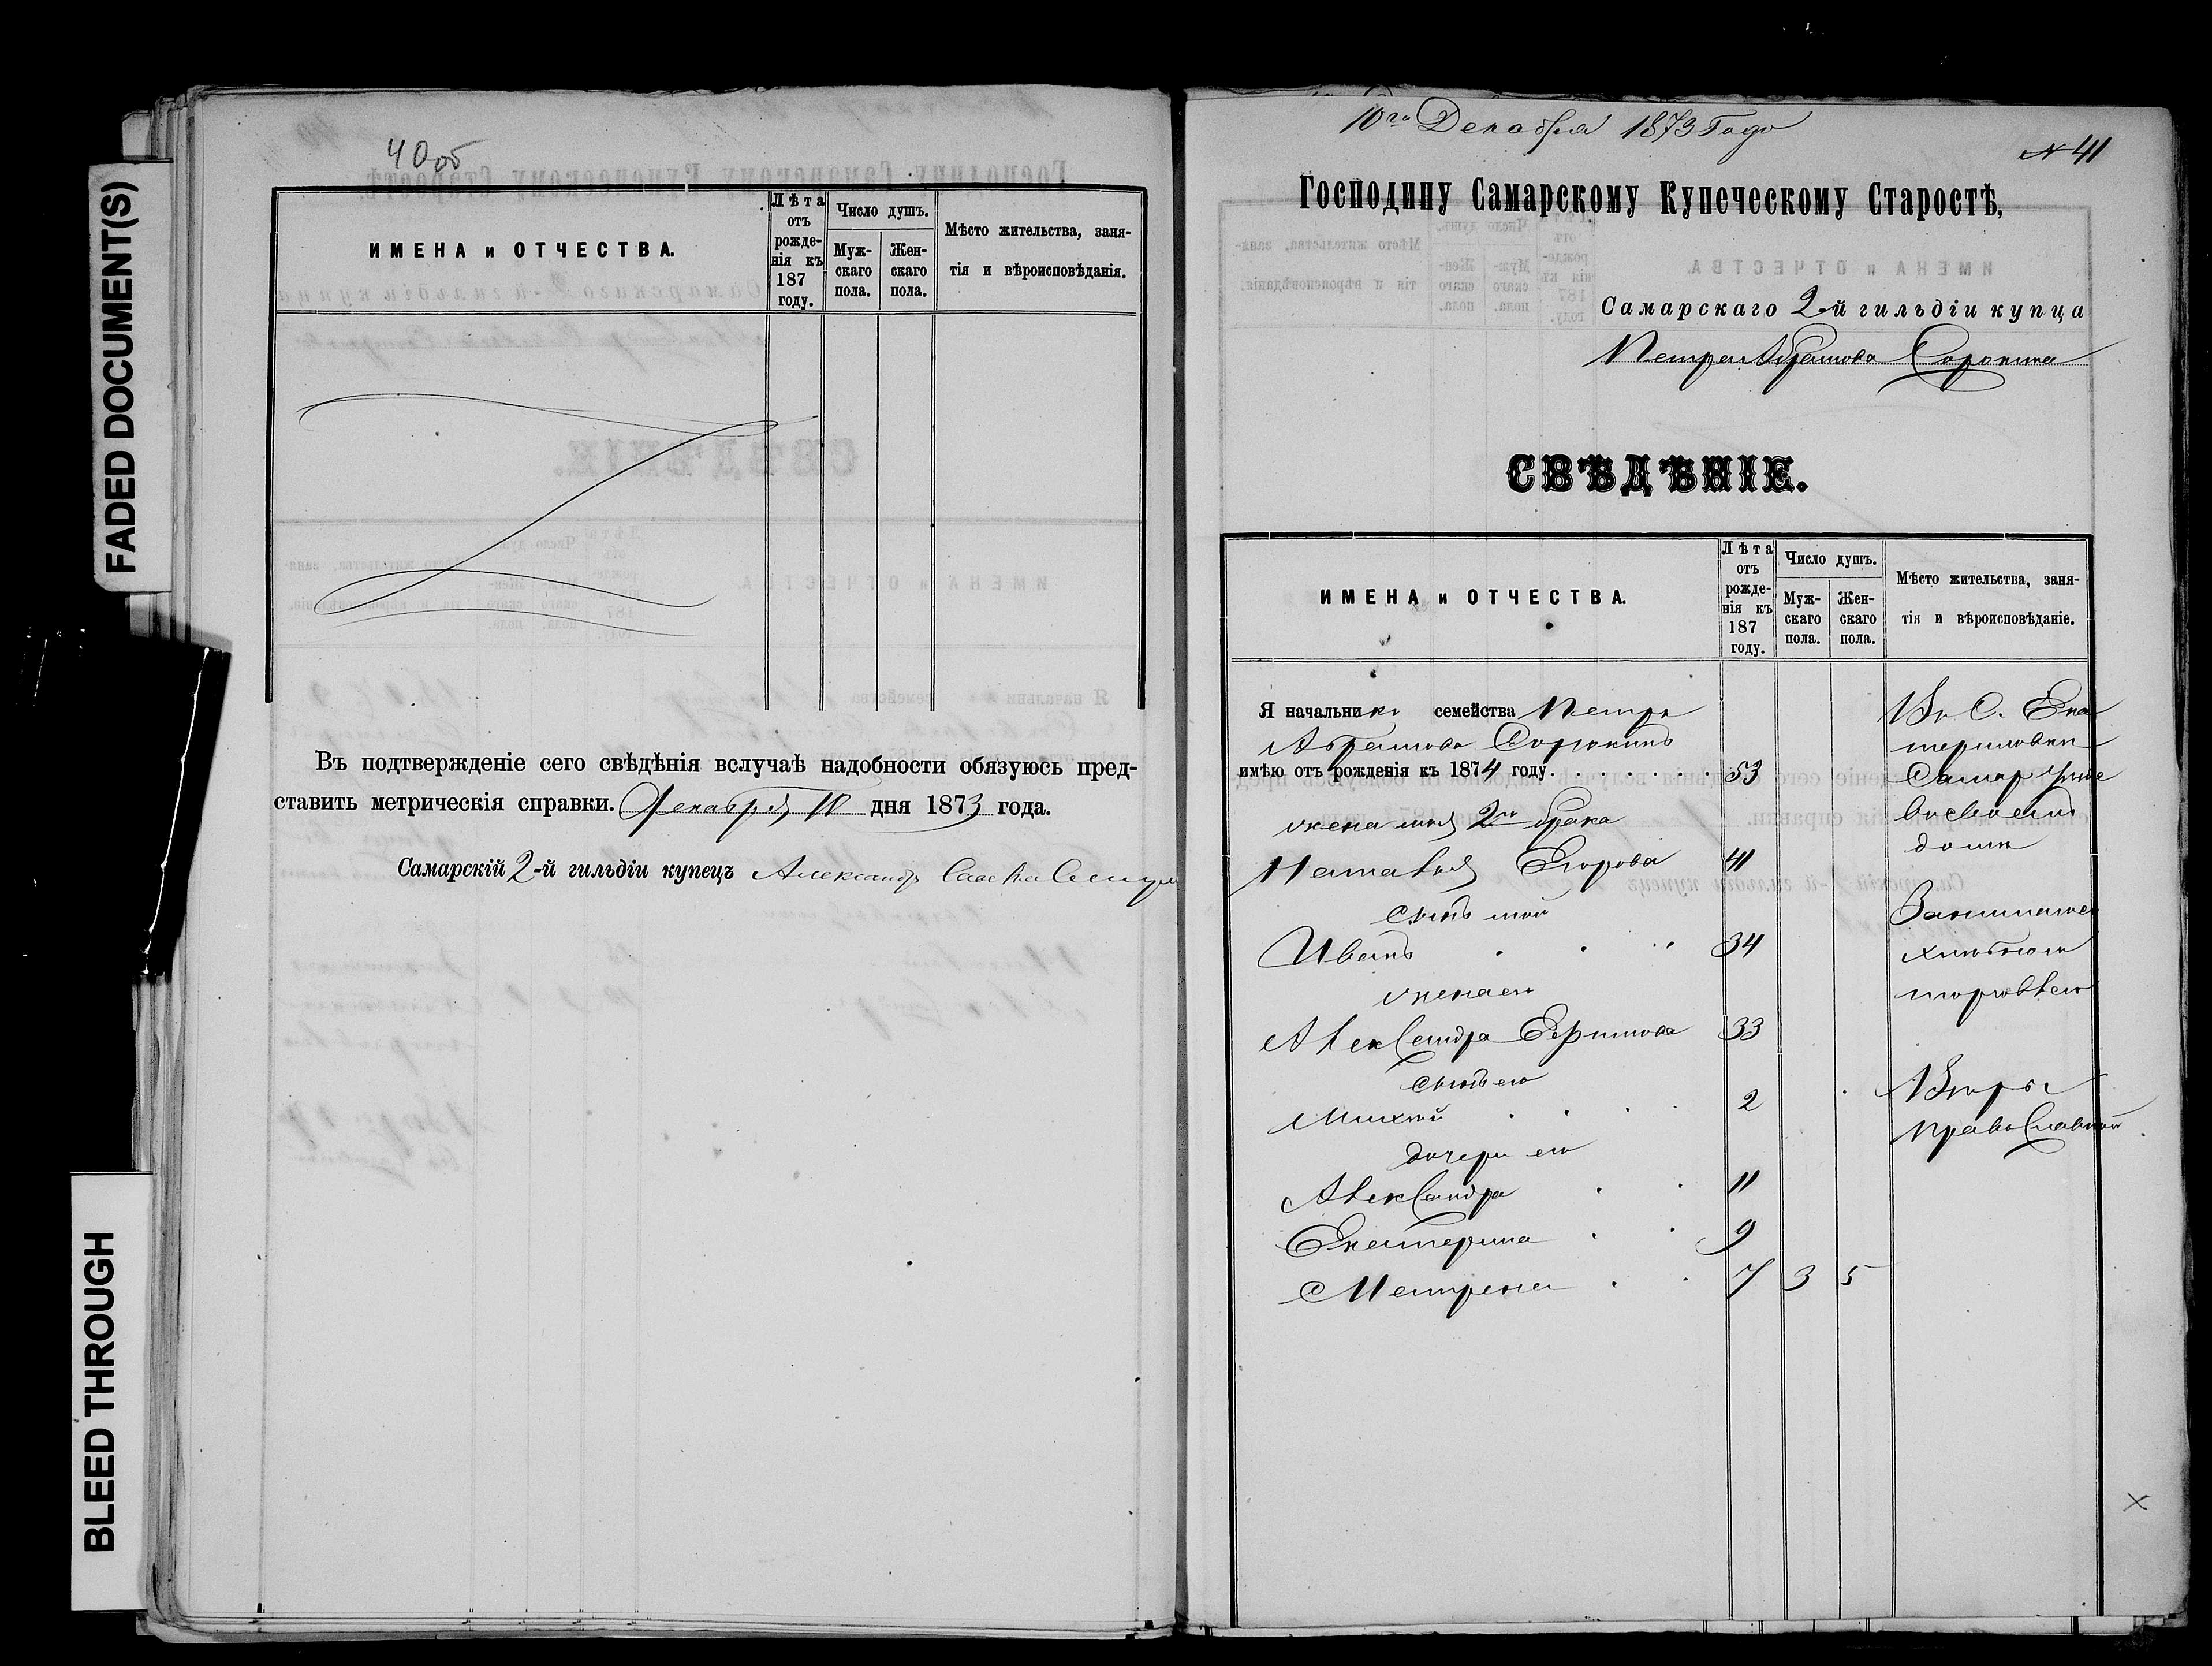 FADED DOCUMENT(S)
BLEED THROUGH
40об
ИМЕНА и ОТЧЕСТВА.
Лѣта отъ рожденія къ 187 году.
Число душъ.
Мужскаго пола.
Женскаго пола.
Мѣсто жительства, занятія и вѣроисповѣданія.
Въ подтвержденіе сего свѣдѣнія вслучаѣ надобности обязуюсь пред-
ставить метрическія справки. Декабря 10 дня 1873 года.
Самарскій 2-й гильдіи купецъ Александр
10го Декабря 1873 Года
№ 41
Господину Самарскому Купеческому Старостѣ,
Самарскаго 2-й гильдіи купца
Петра Абрамова Сорокина
СВѢДѢНІЕ.
ИМЕНА и ОТЧЕСТВА.
Лѣта отъ рожденія къ 187 году.
Число душъ.
Мужскаго пола.
Женскаго пола.
Мѣсто жительства, занятія и вѣроисповѣданіе.
Я начальникъ семейства Петръ
Абрамовъ Сорокинъ
имѣю отъ рожденія къ 1874 году. 53
жена моя 2го брака
Наталья Егорова 41
сынъ мой
Иванъ 34
жена его
Александра Ефимова 33
сынъ его
2
дочери его
Александра 11
Екатерина 9
Матрена 7 3 5
Въ С. Ека
териновки
Самар уезде
въ своемъ
доме
Занимаюсь
хлебною
торговлею
Веры
православной